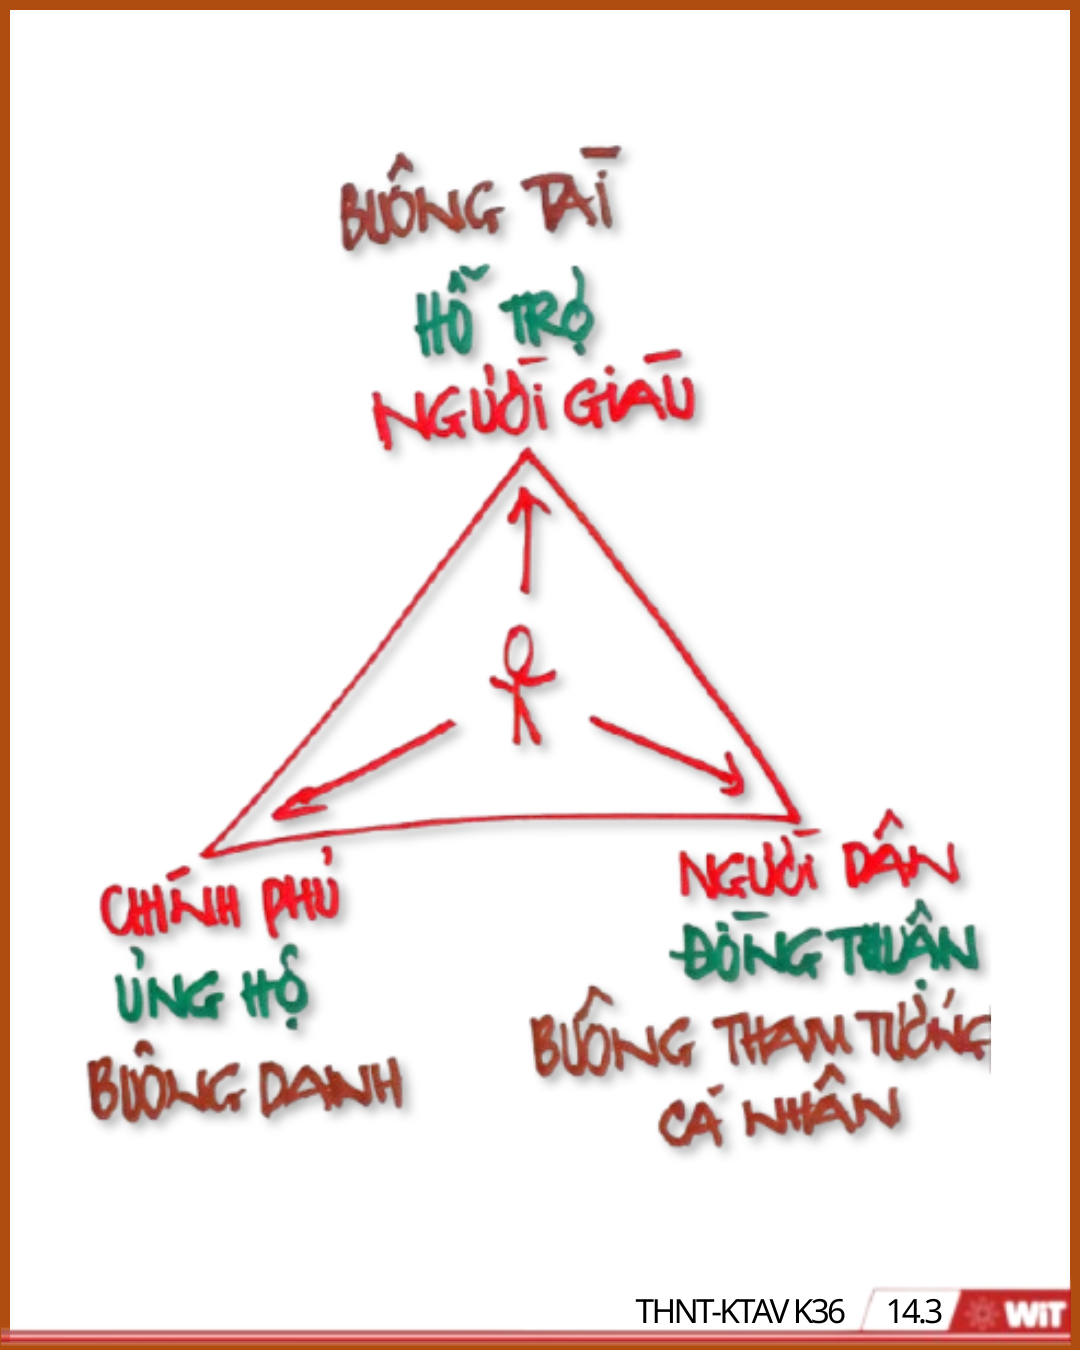 BUÔNG TÀI
HỖ TRỢ
NGƯỜI GIÀU
CHÍNH PHỦ
ỦNG HỘ
BUÔNG DANH
NGƯỜI DÂN
ĐỒNG THUẬN
BUÔNG THAM TƯỚNG
CÁ NHÂN
THNT-KTAV K36
14.3
WiT